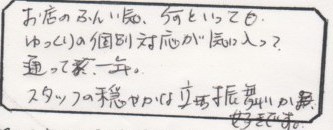 お店のふんい気、何といっても
ゆっくりの個別対応が気に入って
通って数年。
スタッフの穏やかな立ち振舞いが
好きです。